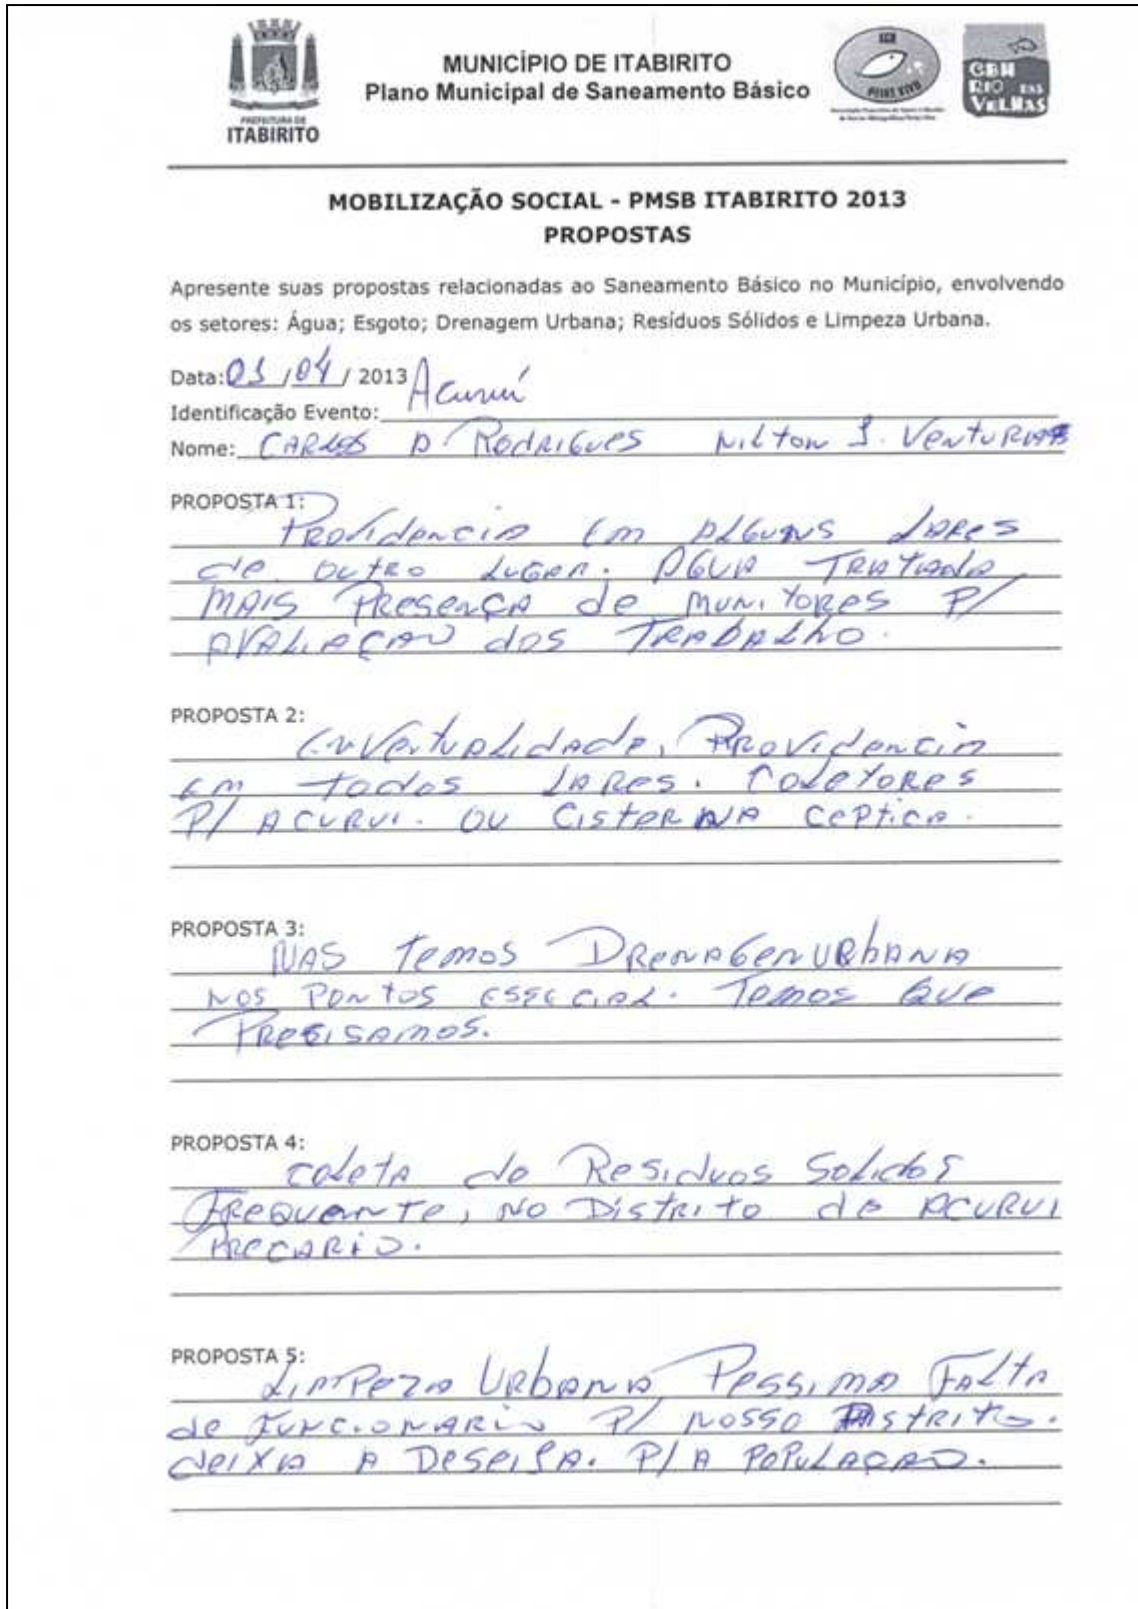 MUNICÍPIO DE ITABIRITO
Plano Municipal de Saneamento Básico
PREFEITURA DE
ITABIRITO
PEIXE VIVO
CBH
RIO DAS
VELHAS
MOBILIZAÇÃO SOCIAL - PMSB ITABIRITO 2013
PROPOSTAS
Apresente suas propostas relacionadas ao Saneamento Básico no Município, envolvendo
os setores: Água; Esgoto; Drenagem Urbana; Resíduos Sólidos e Limpeza Urbana.
Data: 03 / 04 / 2013 Acuruí
Identificação Evento:
Nome: CARLOS D. RODRIGUES NILTON J. VENTURIAS
PROPOSTA 1:
PROVIDENCIA Em ALGUNS LARES
de OUTRO LUGAR. AGUA TRATADA
MAIS PRESENÇA de MUNITORES P/
AVALIAÇAO dos TRABALHO.
PROPOSTA 2:
EnVentuALidade, PROVidencia
Em todos LARES. COLETORES
P/ ACURUI. OU CISTERNA CEPTICA.
PROPOSTA 3:
NAS Temos DRENAGEN URbANA
NOS PONTOS ESPECIAL. Temos QUE
PRECISAMOS.
PROPOSTA 4:
COLETA de RESIDUOS SOLIDOS
FREQUANTE, NO DISTRITO de ACURUI
PRECARIO.
PROPOSTA 5:
LIMPEZA URbANA, PESSIMA FALTA
de FUNCIONARIO P/ NOSSO DISTRITO.
deixA A DESEIJA. P/ A POPULAÇAO.